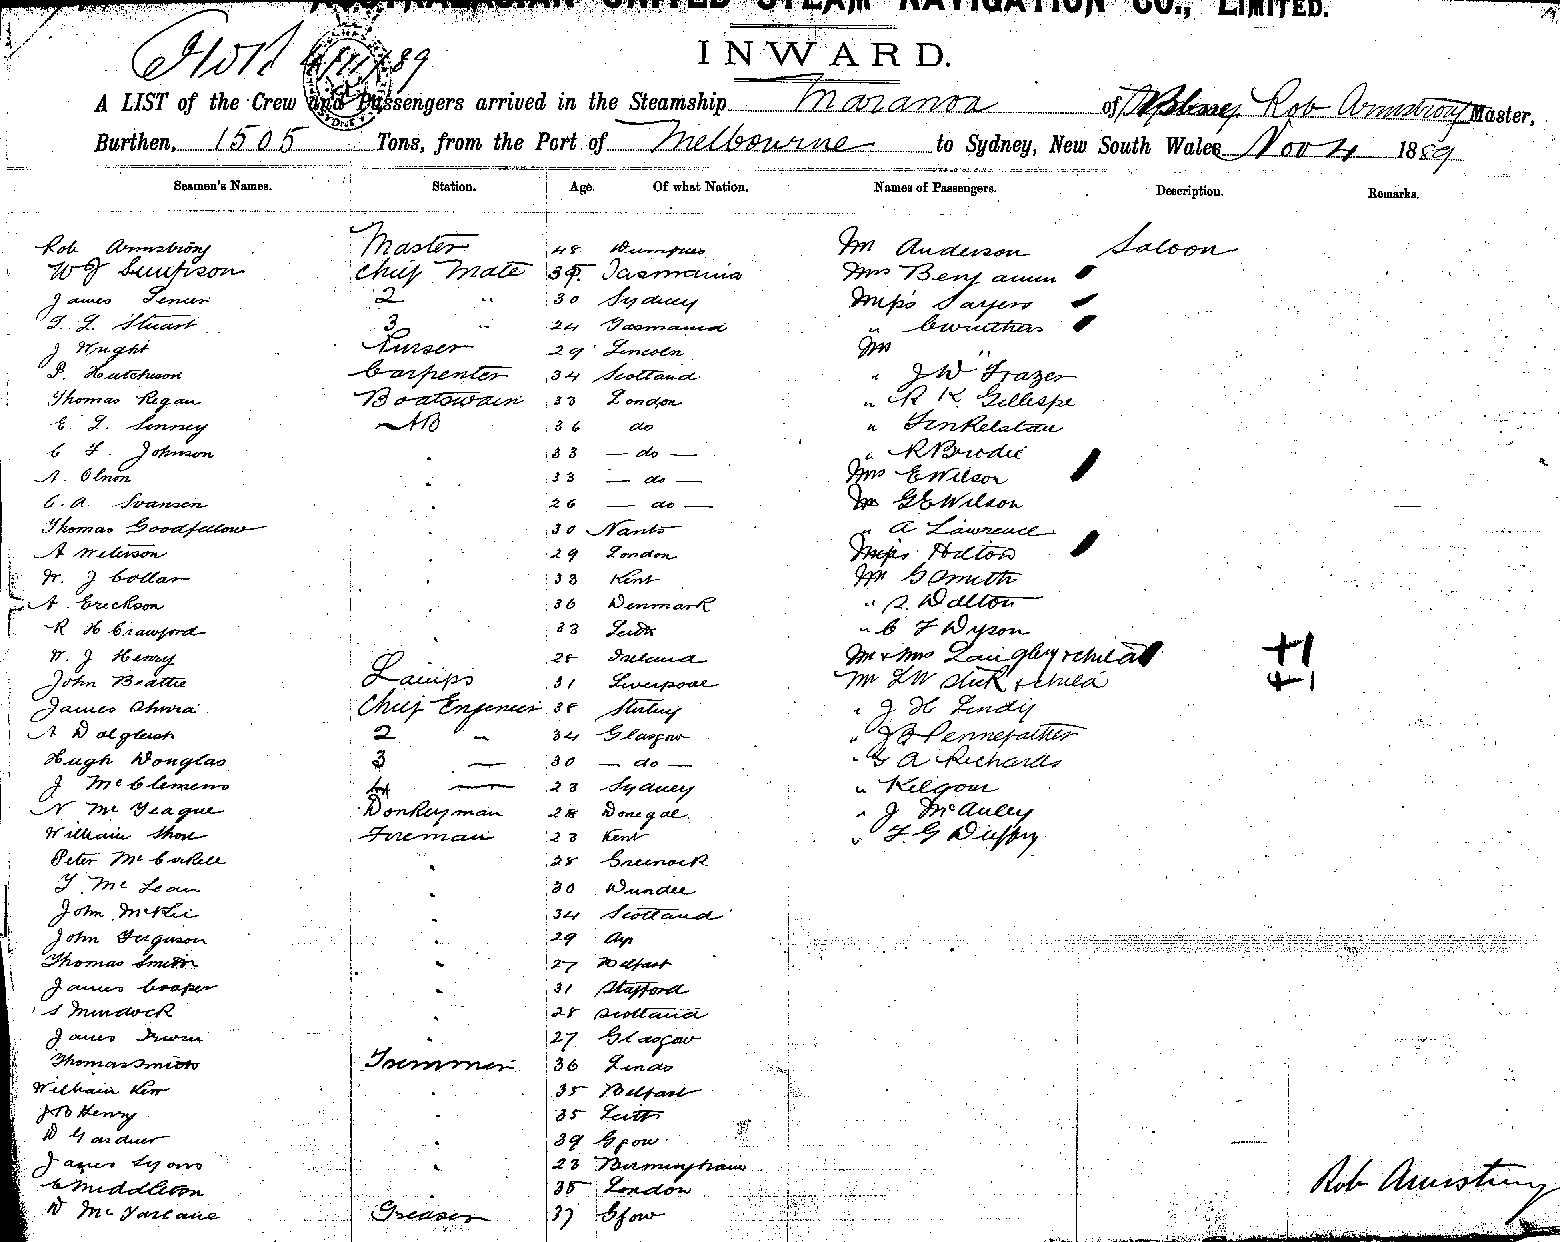 AUSTRALASIAN UNITED STEAM NAVIGATION CO., LIMITED.
INWARD.
A LIST of the Crew and Passengers arrived in the Steamship Maranoa of Rob Armstrong Master,
Burthen, 1505 Tons, from the Port of Melbourne to Sydney, New South Wales Nov 4 1889
Seamen's Names. Station. Age. Of what Nation. Names of Passengers. Description. Remarks.
Rob Armstrong Master 48 Dumfries Mr Anderson Saloon
W J Simpson Chief Mate 39 Tasmania Mrs Benjamin
James 2 " 30 Sydney Miss Sayers
Stuart 3 " 24 Tasmania " Cwruthers
J Wright Purser 29 Lincoln Mr
P. Hutchison Carpenter 34 Scotland " J W Frazer
Thomas Regan Boatswain 33 London " R K Gillespe
E. AB 36 do " Finkelstau
C F. Johnson 33 — do — " R Brodie
A. Olnon 33 — do — Mrs E Wilson
C. A. Svansen 26 — do — Mr G E Wilson
Thomas Goodfellow 30 Nants " A Lawrence
A 29 London Miss Holton
W. J Collar 33 Kent Mr G Smith
A. Erickson 36 Denmark " S. Walton
R H Crawford 33 Leith " C F Dyson
W. J Henry 28 Ireland Mr & Mrs Langley & child
John Beattie Lamps 31 Liverpool Mr L W Dick & child
James Chief Engineer 38 Stirling " J H
A Dalgleish 2 " 34 Glasgow " J B Pennefather
Hugh Douglas 3 — 30 — do — " G A Richards
J McClemens 4 — 23 Sydney " Kilgour
N McTeague Donkeyman 28 Donegal " J McAuley
William Shore Fireman 23 Kent " F. G Duffry
Peter McCorkell 28 Greenock
McLean 30 Dundee
John McKie 34 Scotland
John Ferguson 29 Ayr
Thomas Smith 27 Belfast
James Cooper 31 Stafford
S Murdock 28 Scotland
James Irwin 27 Glasgow
Thomas Smith Trimmer 36 Leeds
William Kerr 35 Belfast
J B Henry 35 Leith
D Gardner 39 Gfow
James Lyons 23 Birmingham
C Middleton 38 London
D McFarlane Greaser 37 Gfow
Rob Armstrong